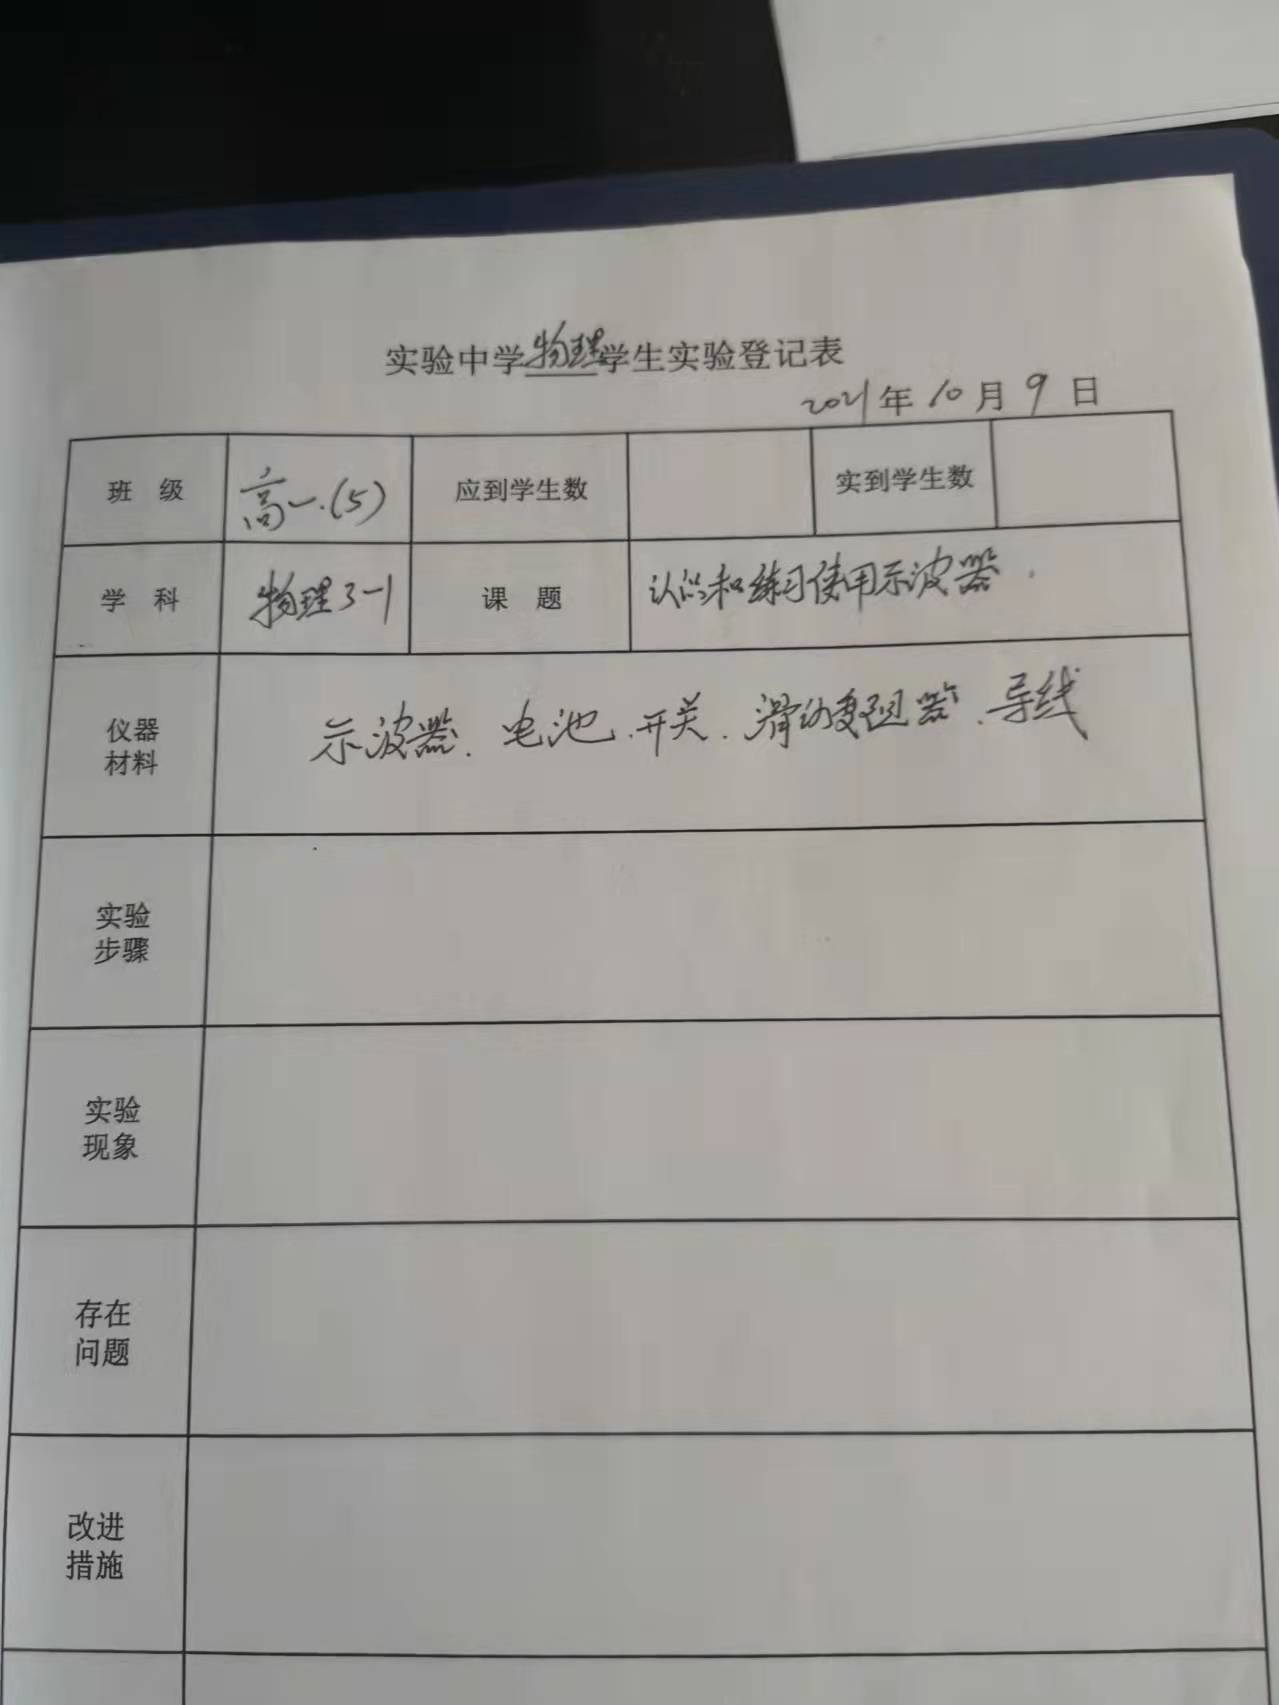 实验中学物理学生实验登记表
2021年10月9日
班 级 高一.(5) 应到学生数 实到学生数
学 科 物理3-1 课 题 认识和练习使用示波器.
仪器
材料
示波器、电池、开关、滑动变阻器、导线
实验
步骤
实验
现象
存在
问题
改进
措施